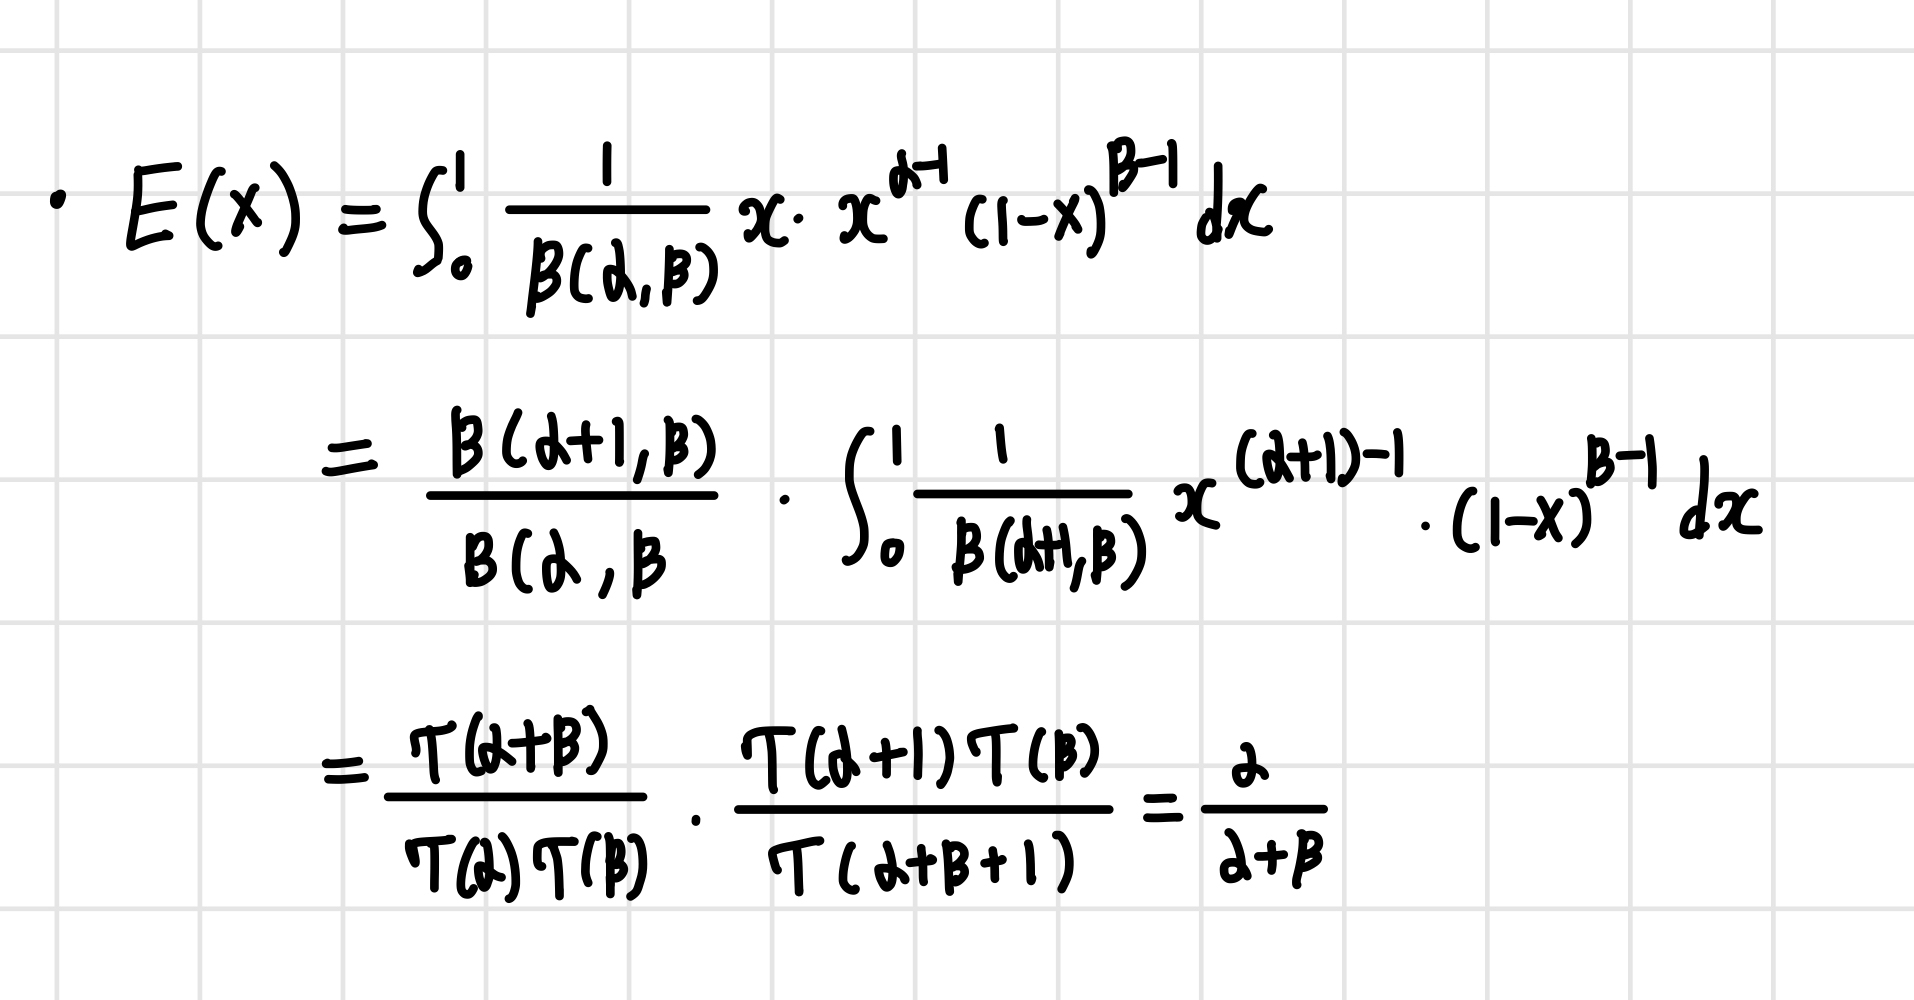 · E(x) = ∫₀¹ 1/B(α,β) x · x^(α-1) (1-x)^(β-1) dx
= B(α+1,β)/B(α,β · ∫₀¹ 1/B(α+1,β) x^((α+1)-1) · (1-x)^(β-1) dx
= Γ(α+β)/Γ(α)Γ(β) · Γ(α+1)Γ(β)/Γ(α+β+1) = α/α+β